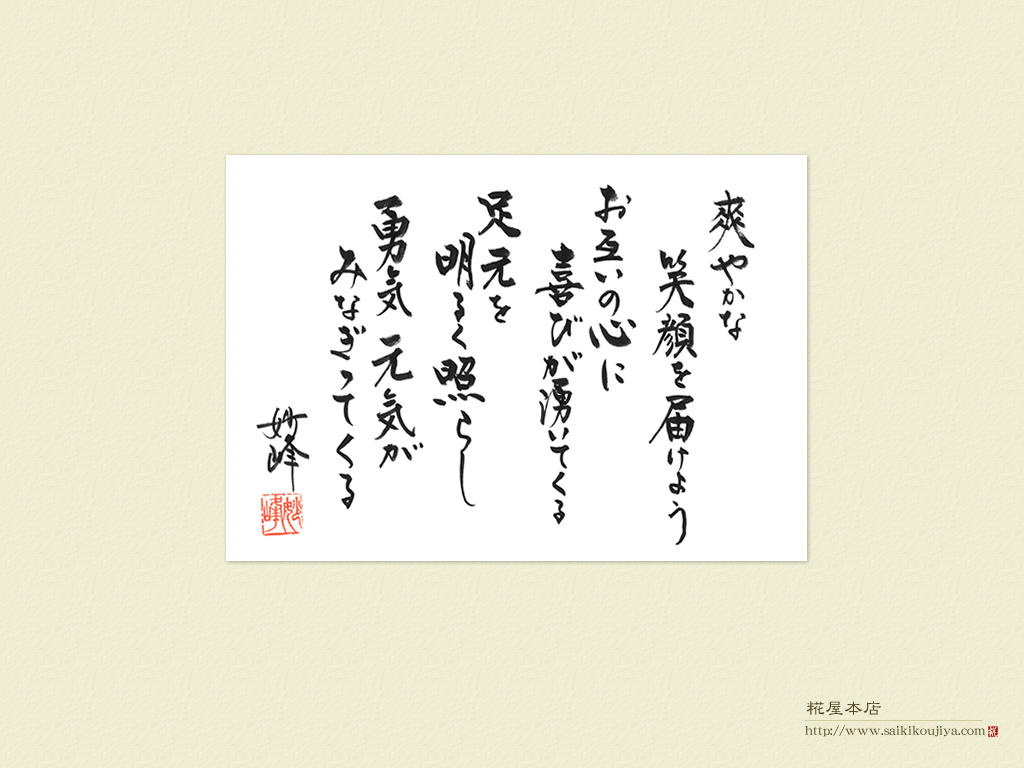 爽やかな
笑顔を届けよう
お互いの心に
喜びが湧いてくる
足元を
明るく照らし
勇気 元気が
みなぎってくる
妙峰
妙峰
糀屋本店
http://www.saikikoujiya.com
糀